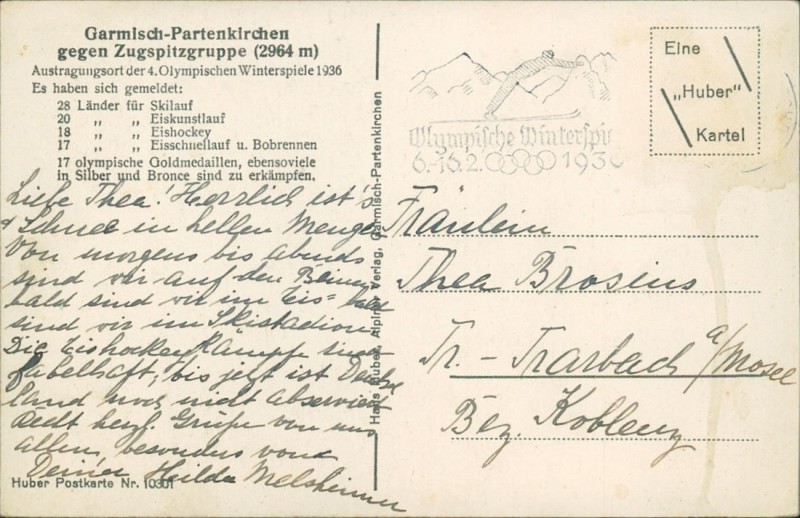 Garmisch-Partenkirchen
gegen Zugspitzgruppe (2964 m)
Austragungsort der 4. Olympischen Winterspiele 1936
Es haben sich gemeldet:
28 Länder für Skilauf
20 „ „ Eiskunstlauf
18 „ „ Eishockey
17 „ „ Eisschnellauf u. Bobrennen
17 olympische Goldmedaillen, ebensoviele
in Silber und Bronce sind zu erkämpfen.
Liebe Thea! Herrlich ist's
Schnee in hellen Mengen
Von morgens bis abends
sind wir auf den Beinen
bald sind wir im Eis- bald
sind wir im Skistadion
Die Eishockey Kämpfe sind
fabelhaft, bis jetzt ist Deutsch
land noch nicht
herzl. Grüße von uns
allen, besonders von
Deiner Heilda Melsheimer
Huber Postkarte Nr. 10301
Hans Huber, Alpiner Verlag, Garmisch-Partenkirchen
Olympische Winterspi
6.-16.2. 193
Eine
„Huber"
Karte!
Fräulein
Thea Brosius
Tr. - Trarbach a/Mosel
Bez. Koblenz